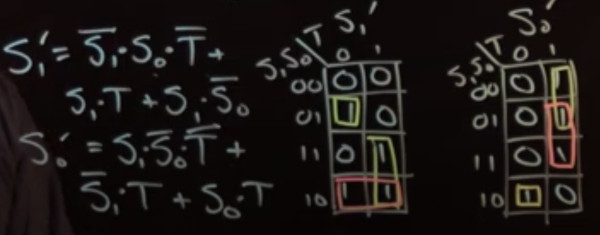 S₁' = S̅₁·S₀·T̅ +
S₁·T + S₁·S̅₀
S₀' = S₁·S̅₀·T̅ +
S̅₁·T + S₀·T
S₁'
S₁S₀ T 0 1
00 0 0
01 1 0
11 0 1
10 1 1
S₀'
S₁S₀ T 0 1
00 0 1
01 0 1
11 0 1
10 1 0